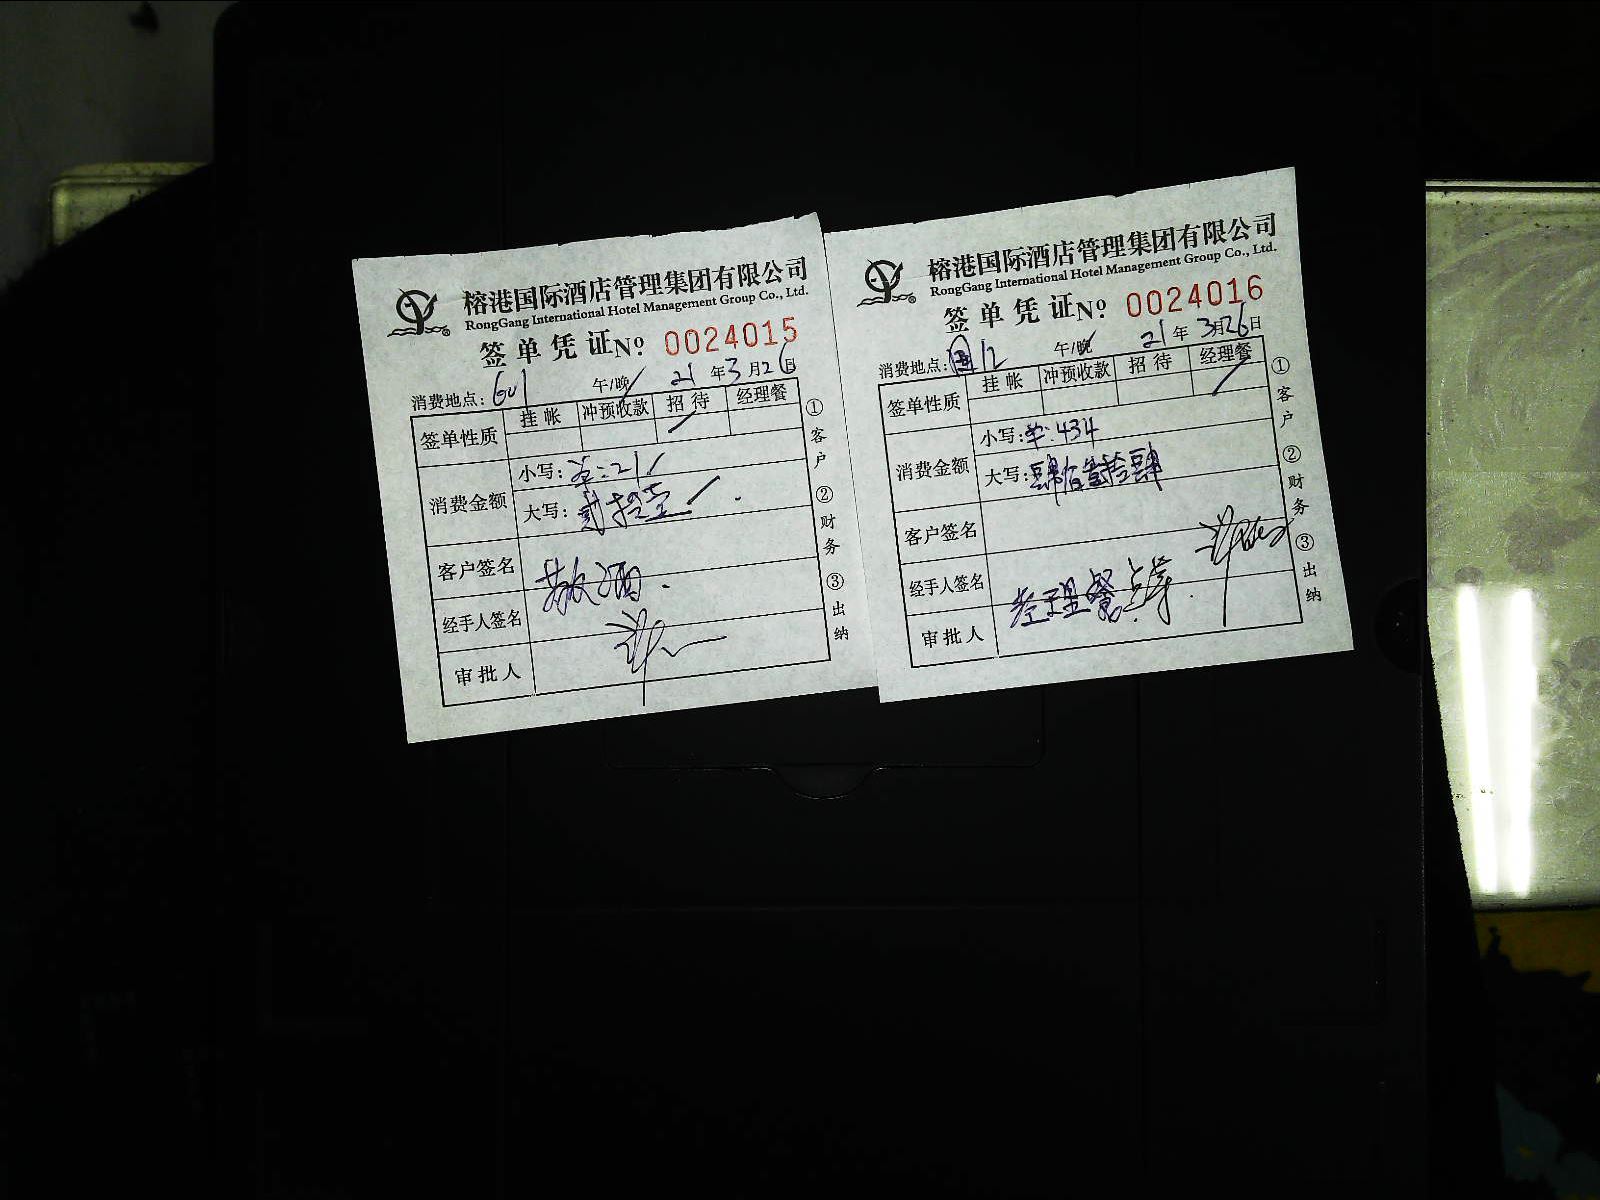 榕港国际酒店管理集团有限公司
RongGang International Hotel Management Group Co., Ltd.
签单凭证No 0024015
消费地点: 601 午/晚 21年3月26日
签单性质 挂帐 冲预收款 招待 经理餐
消费金额 小写: 21
大写: 贰拾壹
客户签名
经手人签名 敬酒.
审批人
① 客户 ② 财务 ③ 出纳
榕港国际酒店管理集团有限公司
RongGang International Hotel Management Group Co., Ltd.
签单凭证No 0024016
消费地点: 12 午/晚 21年3月26日
签单性质 挂帐 冲预收款 招待 经理餐
消费金额 小写: 434
大写: 肆佰叁拾肆
客户签名
经手人签名 经理餐
审批人
① 客户 ② 财务 ③ 出纳